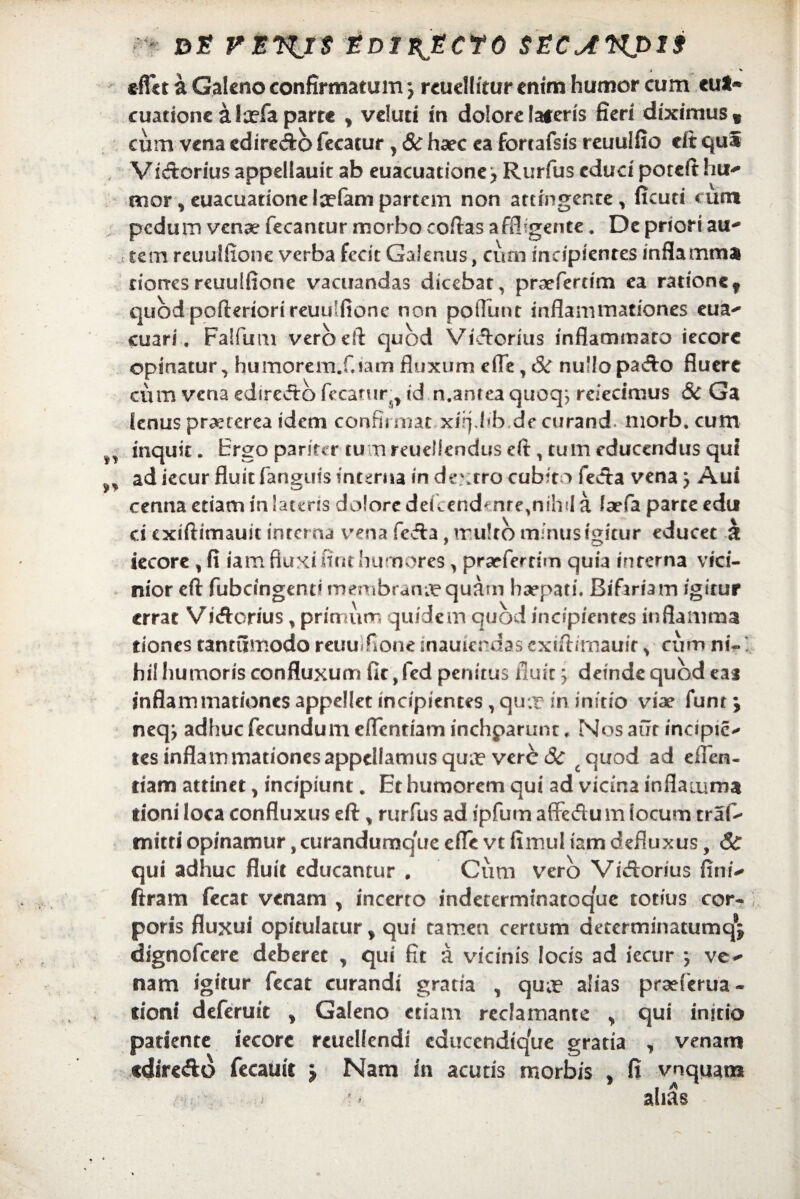 DE VENIS EDIRECTO SECANDIS
esset à Galeno confirmatum; reuellitur enim humor cum eua-
cuatione à læsa parte, veluti in dolore lateris fieri diximus,
cùm vena edirectò secatur, & hæc ea fortassis reuulsio est quã
Victorius appellauit ab euacuatione; Rursus educi potest hu-
mor, euacuatione læsam partem non attingente, sicuti cùm
pedum venæ secantur morbo costas affligente. De priori au-
tem reuulsione verba fecit Galenus, cùm incipientes inflamma
tiones reuulsione vacuandas dicebat, præsertim ea ratione,
quòd posteriori reuulsione non possunt inflammationes eua-
cuari. Falsum verò est quòd Victorius inflammato iecore
opinatur, humorem.s.iam fluxum esse, & nullo pacto fluere
cùm vena edirectò secatur, id n.antea quoq; reiecimus & Ga
lenus præterea idem confirmat xiij.lib.de curand. morb. cum
„ inquit. Ergo pariter tum reuellendus est, tum educendus qui
„ ad iecur fluit sanguis interna in dextro cubito secta vena; Aui
cenna etiam in lateris dolore descendente,nihil à læsa parte edu
ci existimauit interna vena secta, multò minus igitur educet à
iecore, si iam fluxi sint humores, præsertim quia interna vici-
nior est subcingenti membranæ quàm hæpati. Bifariam igitur
errat Victorius, primùm quidem quòd incipientes inflamma
tiones tantũmodo reuulsione inauiendas existimauit, cùm ni-
hil humoris confluxum sit, sed penitus fluit; deinde quòd eas
inflammationes appellet incipientes, quæ in initio viæ sunt;
neq; adhuc secundum essentiam inchoarunt. Nos aũt incipiẽ-
tes inflammationes appellamus quæ verè & quod ad essen-
tiam attinet, incipiunt. Et humorem qui ad vicina inflamma
tioni loca confluxus est, rursus ad ipsum affectum locum trãs-
mitti opinamur, curandumq́ue esse vt simul iam defluxus, &
qui adhuc fluit educantur. Cùm verò Victorius sini-
stram secat venam, incerto indeterminatoq́ue totius cor-
poris fluxui opitulatur, qui tamen certum determinatumq́;
dignoscere deberet, qui fit à vicinis locis ad iecur; ve-
nam igitur secat curandi gratia, quæ alias præserua-
tioni deseruit, Galeno etiam reclamante, qui initio
patiente iecore reuellendi educendiq́ue gratia, venam
edirectò secauit; Nam in acutis morbis, si vnquam
aliâs